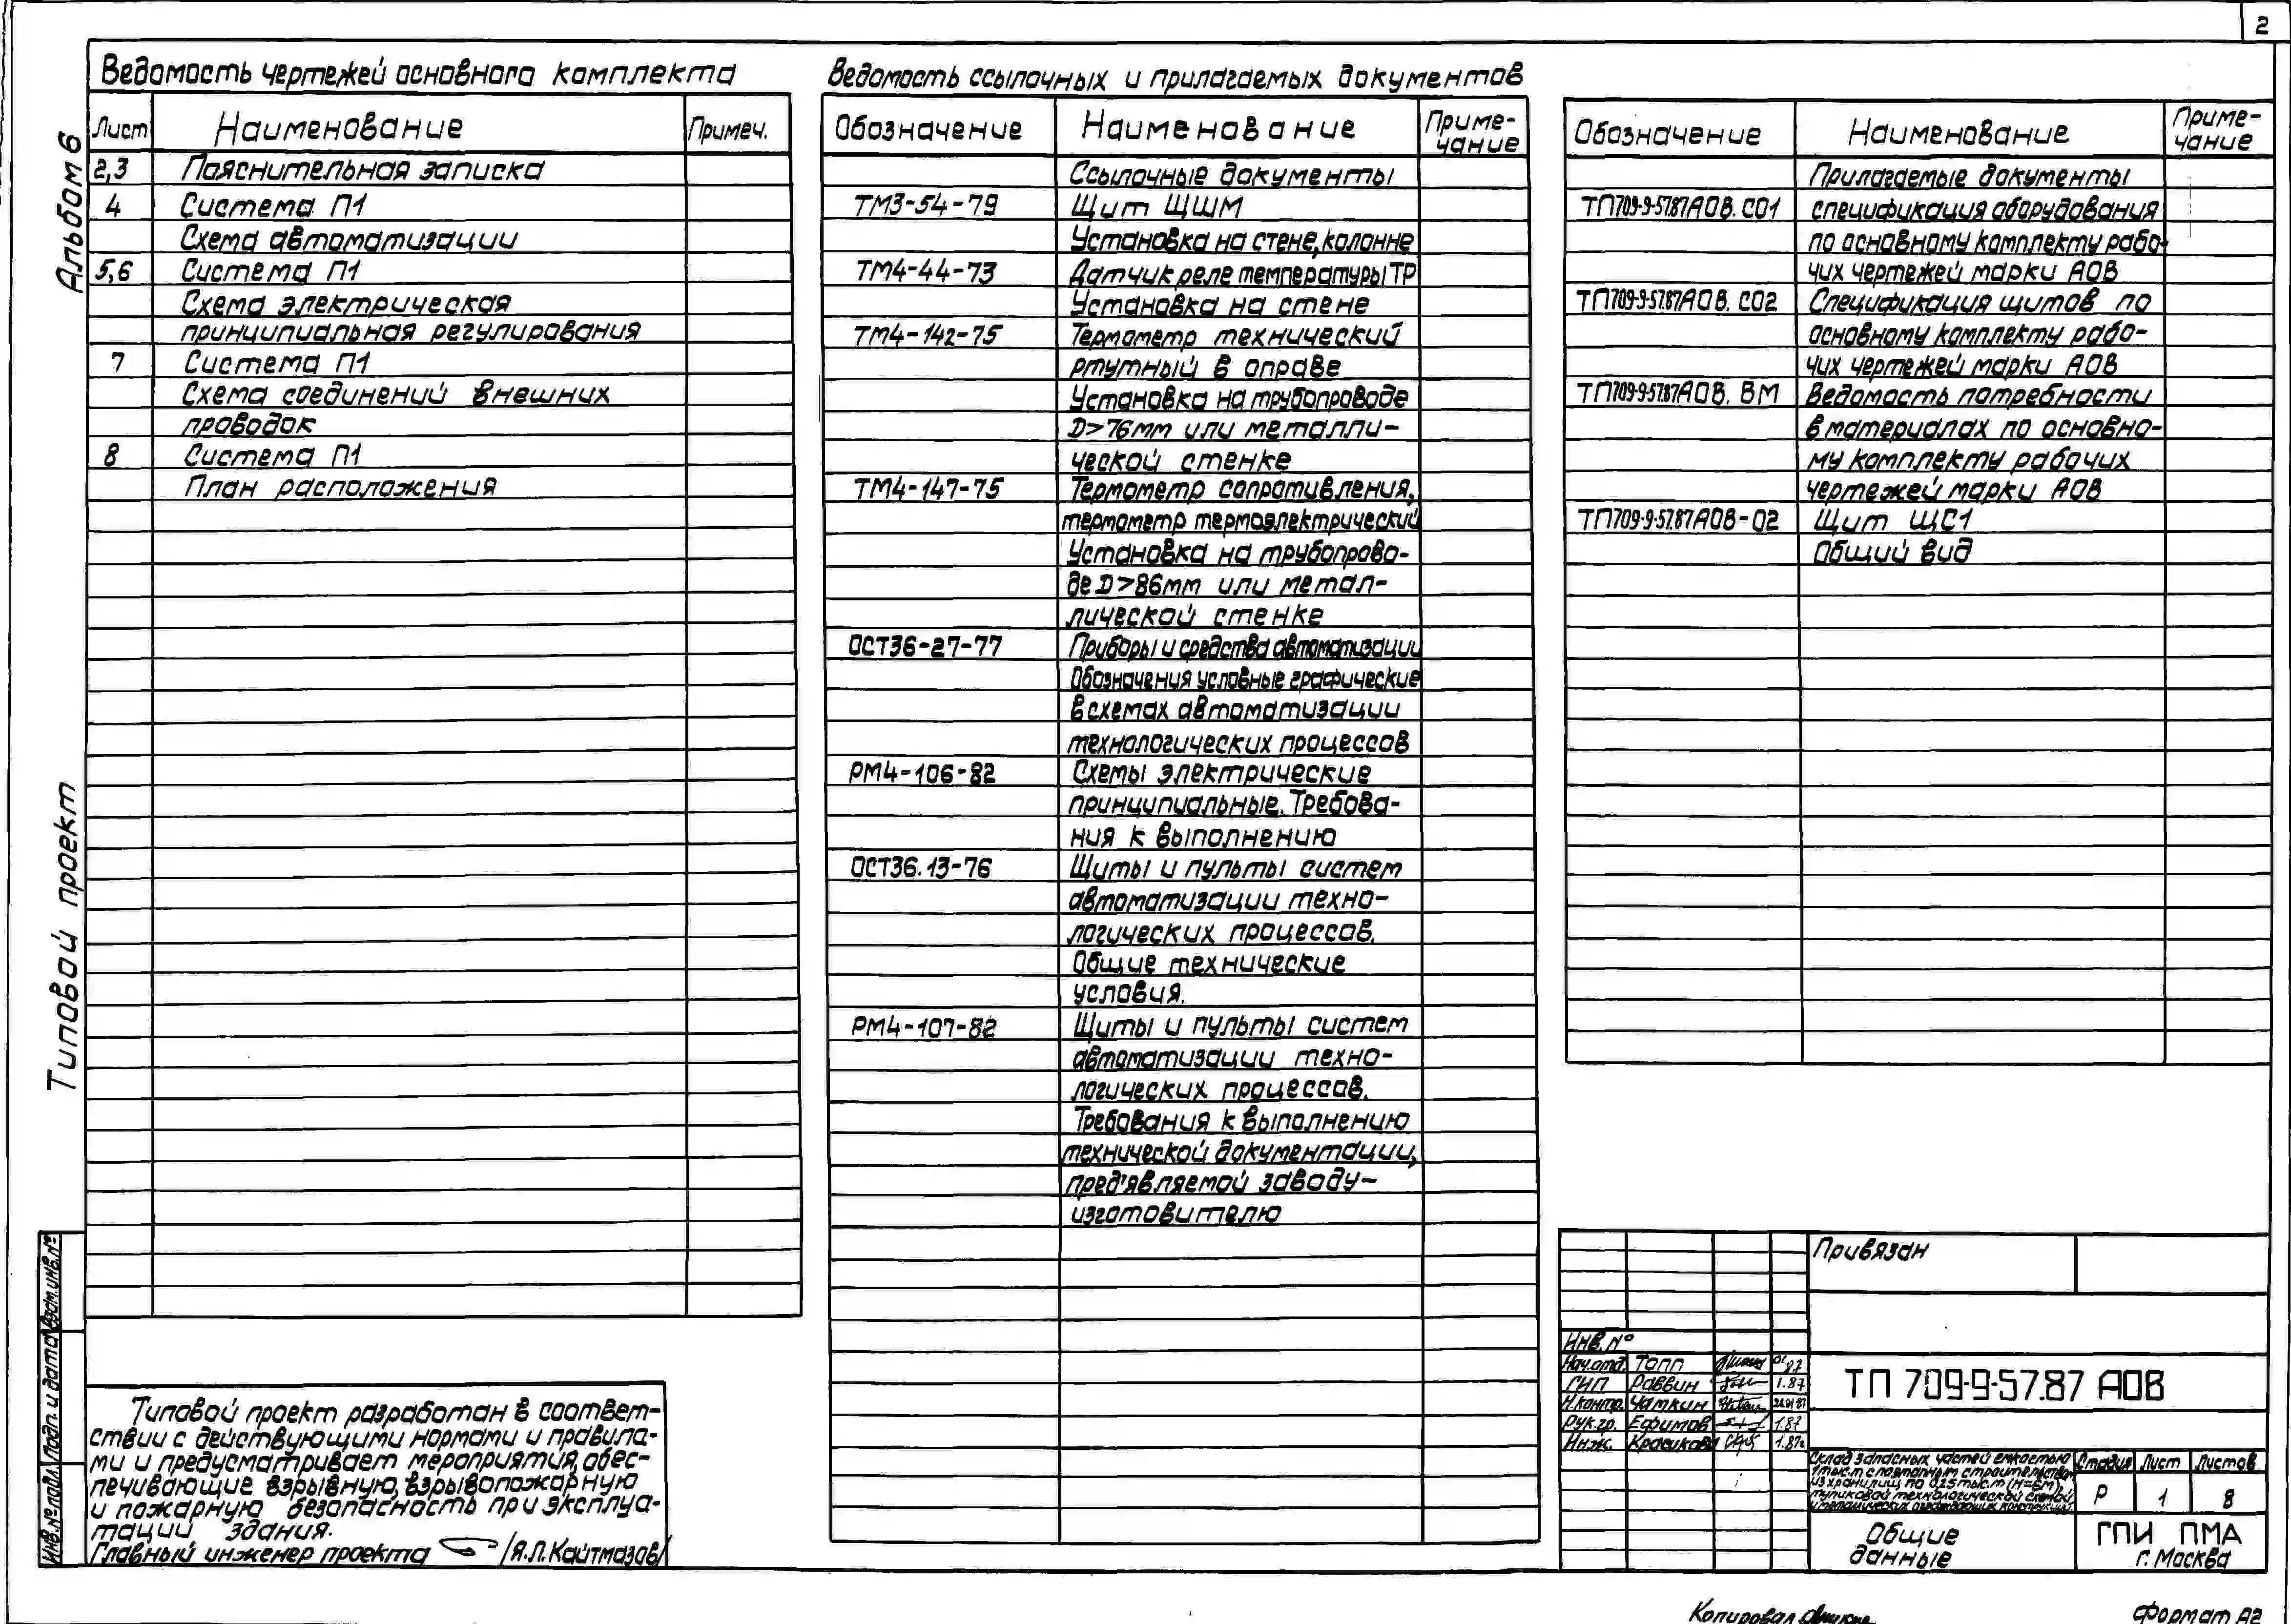 2
Альбом 6
Типовой проект
Ведомость чертежей основного комплекта
Лист Наименование Примеч.
2,3 Пояснительная записка
4 Система П1
Схема автоматизации
5,6 Система П1
Схема электрическая
принципиальная регулирования
7 Система П1
Схема соединений внешних
проводок
8 Система П1
План расположения
Ведомость ссылочных и прилагаемых документов
Обозначение Наименование Приме-
чание
Ссылочные документы
ТМ3-54-79 Щит ЩШМ
Установка на стене, колонне
ТМ4-44-73 Датчик реле температуры ТР
Установка на стене
ТМ4-142-75 Термометр технический
ртутный в оправе
Установка на трубопроводе
D>76мм или металли-
ческой стенке
ТМ4-147-75 Термометр сопротивления,
термометр термоэлектрический
Установка на трубопрово-
де D>86мм или метал-
лической стенке
ОСТ36-27-77 Приборы и средства автоматизации
Обозначения условные графические
в схемах автоматизации
технологических процессов
РМ4-106-82 Схемы электрические
принципиальные. Требова-
ния к выполнению
ОСТ36.13-76 Щиты и пульты систем
автоматизации техно-
логических процессов.
Общие технические
условия.
РМ4-107-82 Щиты и пульты систем
автоматизации техно-
логических процессов.
Требования к выполнению
технической документации,
пред'являемой заводу-
изготовителю
Обозначение Наименование Приме-
чание
Прилагаемые документы
ТП709-9-57.87 АОВ. СО1 спецификация оборудования
по основному комплекту рабо-
чих чертежей марки АОВ
ТП709-9-57.87 АОВ. СО2 Спецификация щитов по
основному комплекту рабо-
чих чертежей марки АОВ
ТП709-9-57.87 АОВ. ВМ Ведомость потребности
в материалах по основно-
му комплекту рабочих
чертежей марки АОВ
ТП709-9-57.87 АОВ-02 Щит ЩС1
Общий вид
Типовой проект разработан в соответ-
ствии с действующими нормами и правила-
ми и предусматривает мероприятия, обес-
печивающие взрывную, взрывопожарную
и пожарную безопасность при эксплуа-
тации здания.
Главный инженер проекта /Я.Л. Кайтмазов/
Взам. инв. №
Подп. и дата
Инв. № подл.
Привязан
Инв. №
Нач.отд. Топп 01 87
ГИП Раввин 1.87
Н.контр. Чамкин 26.01.87
Рук.гр. Ефимов 1.87
Инж. Красикова 1.87г
ТП 709-9-57.87 АОВ
Склад запасных частей емкостью
1 тыс.т с поэтапным строительством
из хранилищ по 0,25 тыс.т (Н=6м) с
тупиковой технологической схемой
и металлических ограждающих конструкций
Стадия Лист Листов
Р 1 8
Общие
данные
ГПИ ПМА
г. Москва
Копировал
Формат А2